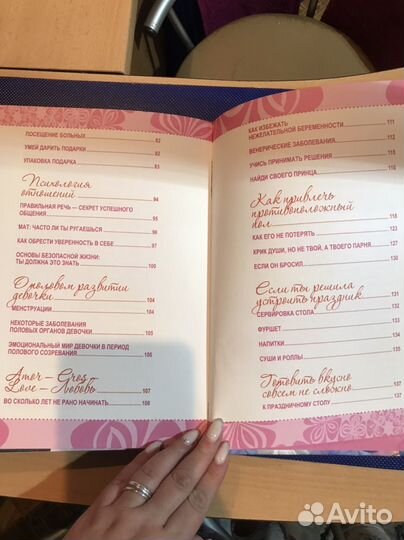 ПОСЕЩЕНИЕ БОЛЬНЫХ 92
УМЕЙ ДАРИТЬ ПОДАРКИ 92
УПАКОВКА ПОДАРКА 93
Психология
отношений 94
ПРАВИЛЬНАЯ РЕЧЬ — СЕКРЕТ УСПЕШНОГО
ОБЩЕНИЯ 95
МАТ: ЧАСТО ЛИ ТЫ РУГАЕШЬСЯ 96
КАК ОБРЕСТИ УВЕРЕННОСТЬ В СЕБЕ 97
ОСНОВЫ БЕЗОПАСНОЙ ЖИЗНИ:
ТЫ ДОЛЖНА ЭТО ЗНАТЬ 100
О половом развитии
девочки 104
МЕНСТРУАЦИИ 104
НЕКОТОРЫЕ ЗАБОЛЕВАНИЯ
ПОЛОВЫХ ОРГАНОВ ДЕВОЧКИ 105
ЭМОЦИОНАЛЬНЫЙ МИР ДЕВОЧКИ В ПЕРИОД
ПОЛОВОГО СОЗРЕВАНИЯ 106
Amor — Eros —
Love — Любовь 107
ВО СКОЛЬКО ЛЕТ НЕ РАНО НАЧИНАТЬ 108
КАК ИЗБЕЖАТЬ
НЕЖЕЛАТЕЛЬНОЙ БЕРЕМЕННОСТИ 111
ВЕНЕРИЧЕСКИЕ ЗАБОЛЕВАНИЯ 112
УЧИСЬ ПРИНИМАТЬ РЕШЕНИЯ 115
НАЙДИ СВОЕГО ПРИНЦА 116
Как привлечь
противоположный
пол 118
КАК ЕГО НЕ ПОТЕРЯТЬ 123
КРИК ДУШИ, НО НЕ ТВОЙ, А ТВОЕГО ПАРНЯ 127
ЕСЛИ ОН БРОСИЛ 130
Если ты решила
устроить праздник 131
СЕРВИРОВКА СТОЛА 132
ФУРШЕТ 134
НАПИТКИ 134
СУШИ И РОЛЛЫ 135
Готовить вкусно
совсем не сложно 137
К ПРАЗДНИЧНОМУ СТОЛУ 137
Avito